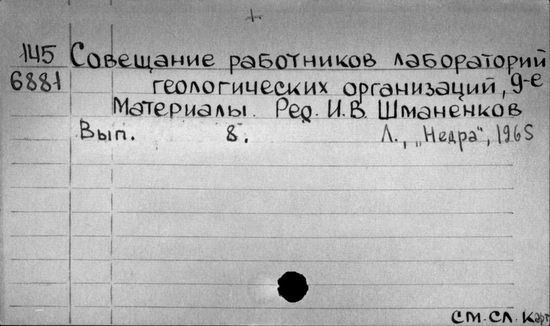 +
145 Совещание работников лабораторий
6881 геологических организаций, 9-е
Материалы. Ред. И.В. Шманенков
Вып. 8. Л., „Недра", 1965
см. сл. карт